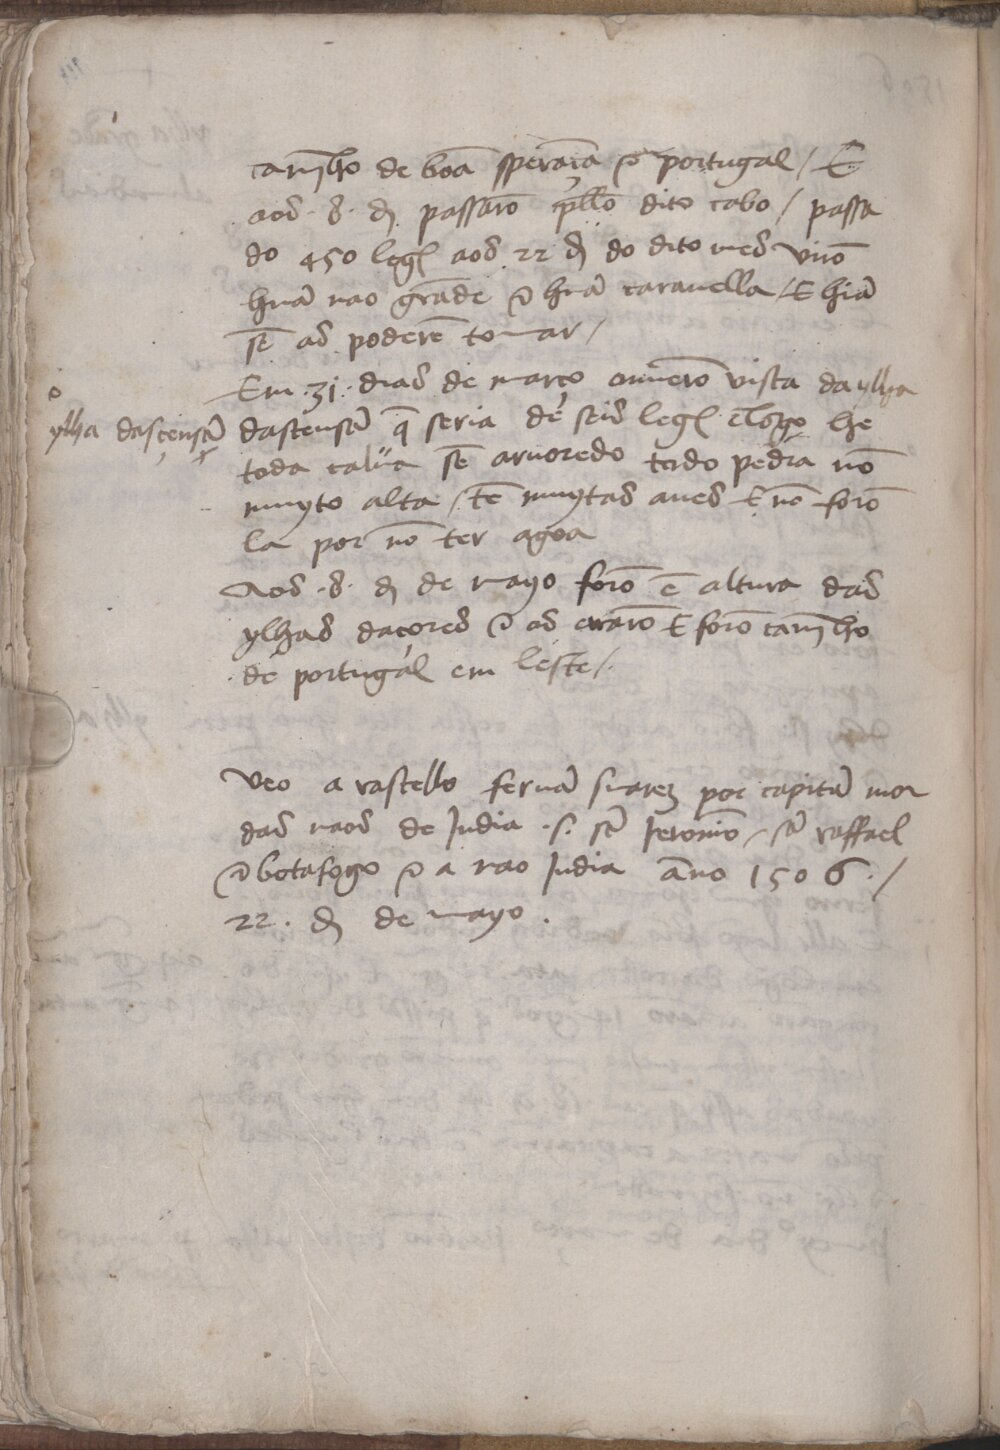 camĩho de boã sperãça ⁊ portugal / E
aos .8. dj passarõ pllo dito cabo / passa
do 450 legl aos 22 dj do dito mes virõ
hũa nao grãde ⁊ hũa carauella / E hiã
sẽ as poderẽ tomar /
Em .31. dias de março ouuerõ vista da ylha
ylha dascensã
dascensã q̃ seria de seis legl ẽ logo he
toda calua sẽ aruoredo todo pedra nõ
muyto alta / tẽ muytas aues E nõ forõ
la por nõ ter agoa
Aos .8. dj de mayo forõ ẽ altura das
ylhas daçores ⁊ as errarõ E forõ camĩho
de portugal em leste /.
Veo a rastello fernã suarez por capitã mor
das naos de Jndia .s. sã Jeronimõ / sã raffael
⁊ botafogo ⁊ a nao Jndia ãno 1506 . /
22 . dj de mayo .